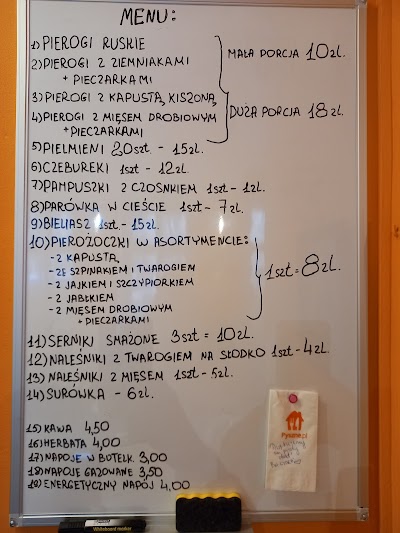 MENU:
1) PIEROGI RUSKIE
2) PIEROGI Z ZIEMNIAKAMI
+ PIECZARKAMI
MAŁA PORCJA 10zl.
3) PIEROGI Z KAPUSTĄ KISZONĄ
4) PIEROGI Z MIĘSEM DROBIOWYM
+ PIECZARKAMI
DUŻA PORCJA 18zl.
5) PIELMIENI 20szt. - 15zl.
6) CZEBUREKI 1szt - 12zl.
7) PAMPUSZKI Z CZOSNKIEM 1szt - 1zl.
8) PARÓWKA W CIEŚCIE 1szt - 7zl.
9) BIELIASZ 1szt. - 15zl.
10) PIEROŻOCZKI W ASORTYMENCIE:
- Z KAPUSTĄ
- ZE SZPINAKIEM I TWAROGIEM
- Z JAJKIEM I SZCZYPIORKIEM
- Z JABŁKIEM
- Z MIĘSEM DROBIOWYM
+ PIECZARKAMI
1szt = 8zl.
11) SERNIKI SMAŻONE 3szt = 10zl.
12) NALEŚNIKI Z TWAROGIEM NA SŁODKO 1szt - 4zl.
13) NALEŚNIKI Z MIĘSEM 1szt - 5zl.
14) SURÓWKA - 6zl.
15) KAWA 4,50
16) HERBATA 4,00
17) NAPOJE W BUTELK. 3,00
18) NAPOJE GAZOWANE 3,50
19) ENERGETYCZNY NAPÓJ 4,00
Pyszne.pl
Whiteboard marker